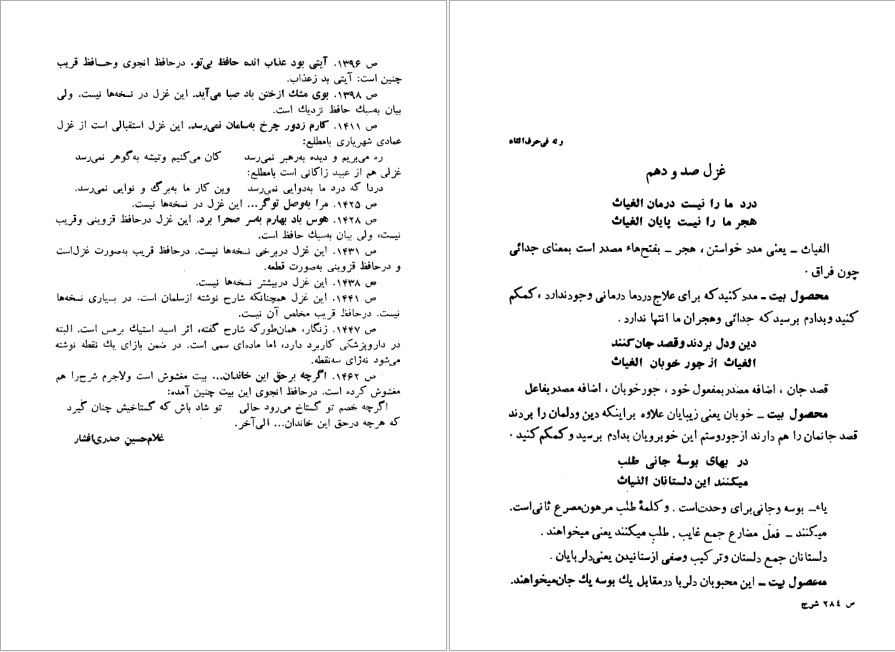 و له فی‌حرف‌الثاء
غزل صد و دهم
درد ما را نیست درمان الغیاث
هجر ما را نیست پایان الغیاث
الغیاث ــ یعنی مدد خواستن ، هجر ــ بفتح‌هاء مصدر است بمعنای جدائی
چون فراق .
محصول بیت ــ مدد کنید که برای علاج دردما درمانی وجودندارد ، کمکم
کنید وبدادم برسید که جدائی وهجران ما انتها ندارد .
دین ودل بردند وقصد جان کنند
الغیاث از جور خوبان الغیاث
قصد جان ، اضافه مصدربمفعول خود ، جورخوبان ، اضافه مصدربفاعل
محصول بیت ــ خوبان یعنی زیبایان علاوه براینکه دین ودلمان را بردند
قصد جانمان را هم دارند ازجوروستم این خوبرویان بدادم برسید وکمکم کنید .
در بهای بوسهٔ جانی طلب
میکنند این دلستانان الغیاث
یاءــ بوسه وجانی‌برای وحدت‌است . وکلمهٔ طلب مرهون‌مصرع ثانی‌است.
میکنند ــ فعل مضارع جمع غایب . طلب میکنند یعنی میخواهند .
دلستانان جمع دلستان وترکیب وصفی ازستانیدن یعنی‌دلربایان .
محصول بیت ــ این محبوبان دلربا درمقابل یك بوسه یك جان‌میخواهند.
ص ۲۸٤ شرح
ص ۱۳۹۶. آیتی بود عذاب انده حافظ بی‌تو. درحافظ انجوی وحــافظ قریب
چنین است: آیتی بد زعذاب.
ص ۱۳۹۸. بوی مشك ازختن باد صبا می‌آید. این غزل در نسخه‌ها نیست. ولی
بیان به‌سبك حافظ نزدیك است.
ص ۱۴۱۱. کارم زدور چرخ به‌سامان نمی‌رسد. این غزل استقبالی است از غزل
عمادی شهریاری بامطلع:
ره می‌بریم و دیده به‌رهبر نمی‌رسد کان می‌کنیم وتیشه به‌گوهر نمی‌رسد
غزلی هم از عبید زاکانی است بامطلع:
دردا که درد ما به‌دوایی نمی‌رسد وین کار ما به‌برگ و نوایی نمی‌رسد.
ص ۱۴۲۵. مرا به‌وصل توگر... این غزل در نسخه‌ها نیست.
ص ۱۴۲۸. هوس باد بهارم به‌سر صحرا برد. این غزل درحافظ قزوینی وقریب
نیست، ولی بیان به‌سبك حافظ است.
ص ۱۴۳۱. این غزل دربرخی نسخه‌ها نیست. درحافظ قریب به‌صورت غزل‌است
و درحافظ قزوینی به‌صورت قطعه.
ص ۱۴۳۸. این غزل دربیشتر نسخه‌ها نیست.
ص ۱۴۴۱. این غزل همچنانکه شارح نوشته ازسلمان است. در بسیاری نسخه‌ها
نیست. درحافظ قریب مخلص آن نیست.
ص ۱۴۴۷. زنگار، همان‌طورکه شارح گفته، اثر اسید استیك برمس است. البته
در داروپزشکی کاربرد دارد، اما ماده‌ای سمی است. در ضمن بازای یك نقطه نوشته
می‌شود نه‌ژای سه‌نقطه.
ص ۱۴۶۲. اگرچه برحق این خاندان... بیت مغشوش است ولاجرم شرح‌را هم
مغشوش کرده است. درحافظ انجوی این بیت چنین آمده:
اگرچه خصم تو گستاخ می‌رود حالی تو شاد باش که گستاخیش چنان گیرد
که هرچه درحق این خاندان... الی‌آخر.
غلام‌حسین صدری‌افشار